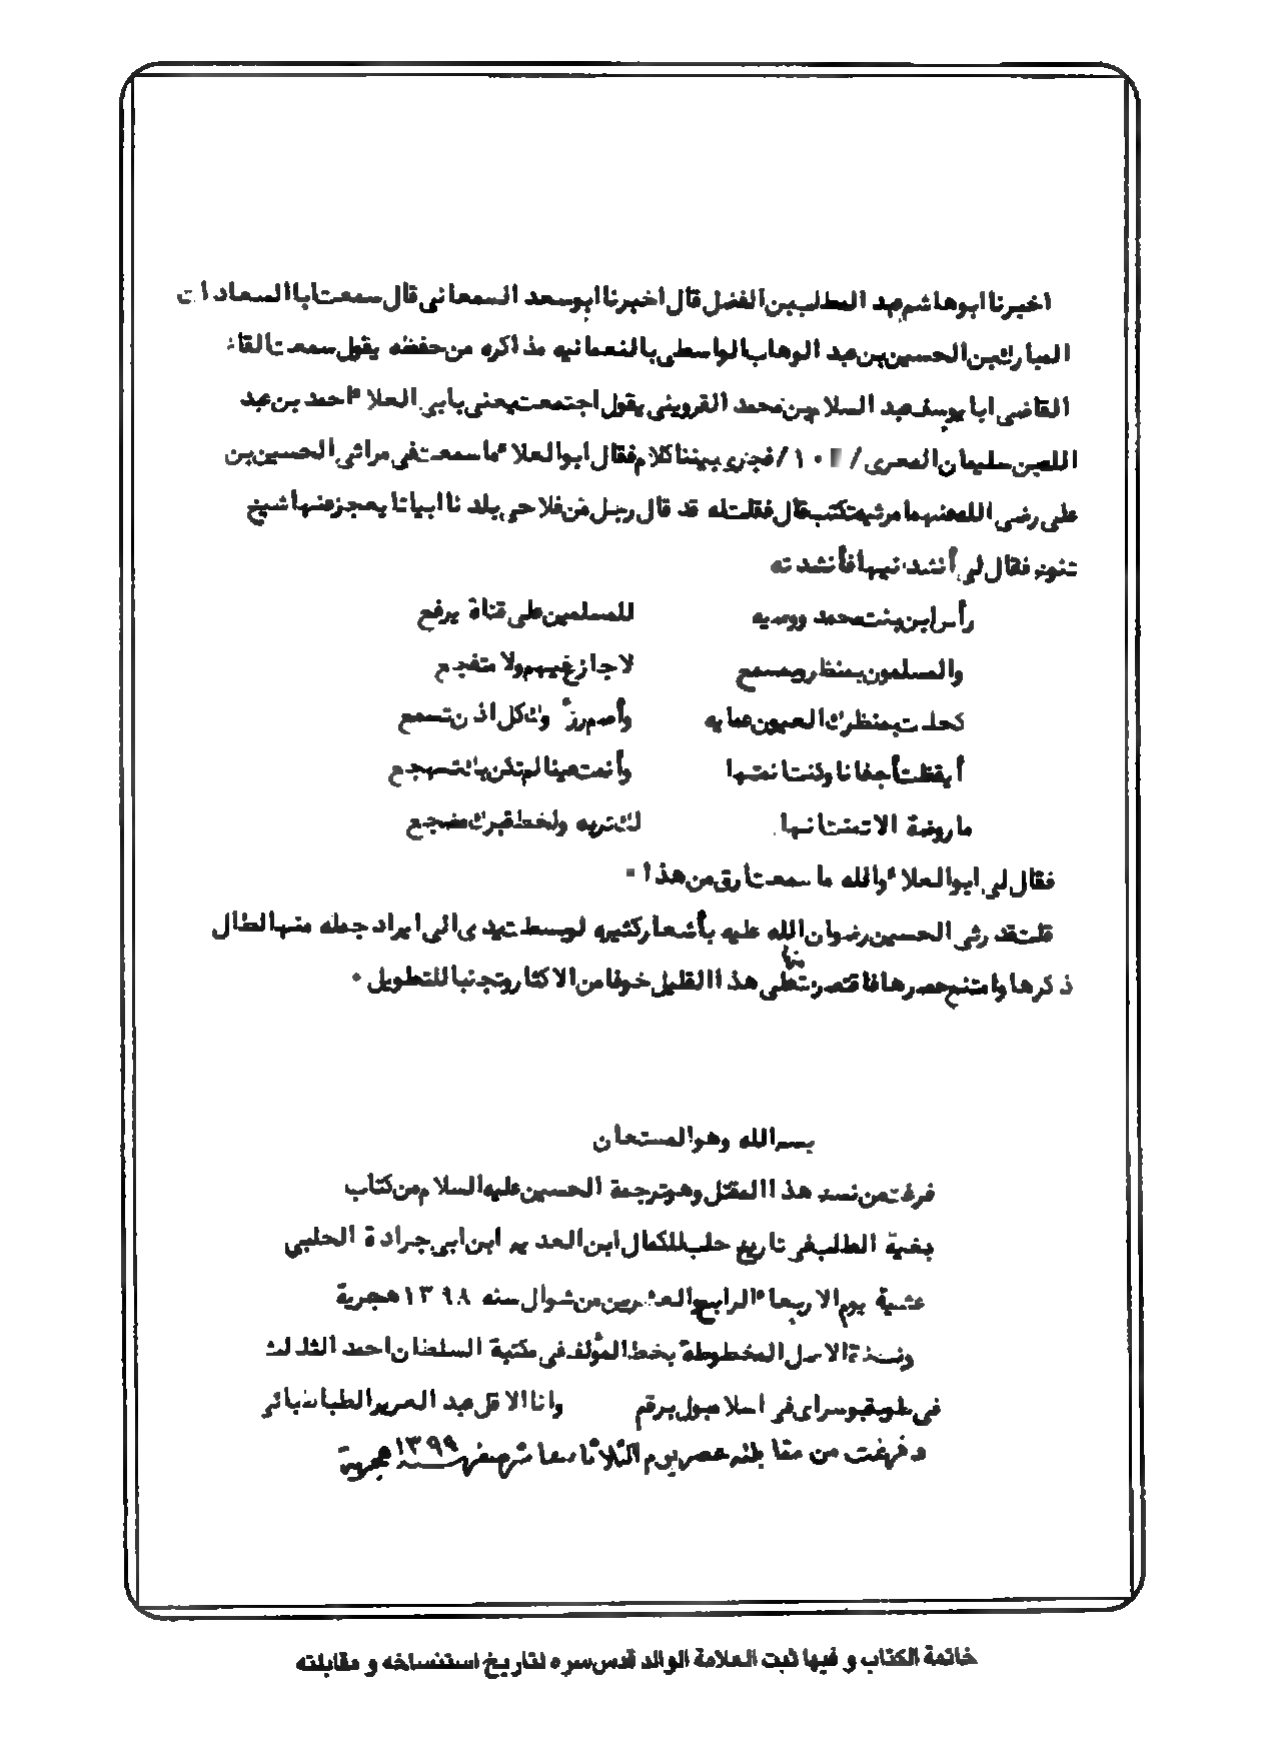 اخبرنا ابو هاشم عبد المطلب بن الفضل قال اخبرنا ابو سعد السمعاني قال سمعت ابا السعادات
المبارك بن الحسين بن عبد الوهاب الواسطي بالنعمانيه مذاكره من حفظه يقول سمعت القا
القاضي ابا يوسف عبد السلام بن محمد القزويني يقول اجتمعت يعني بابي العلاء احمد بن عبد
الله بن سليمان المعري / فجرى بيننا كلام فقال ابو العلاء ما سمعت في مراثي الحسين بن
علي رضي الله عنهما مرثيه تكتب قال فقلت له قد قال رجل من فلاحي بلدنا ابياتا يعجز عنها شيخ
تنوخ فقال لي أنشدنيها فأنشدته
رأس ابن بنت محمد ووصيه للمسلمين على قناة يرفع
والمسلمون بمنظر وبمسمع لا جازع فيهم ولا متفجع
كحلت بمنظرك العيون عمايه وأصم رزؤك كل اذن تسمع
أيقظت أجفانا وكنت انمتها وأنمت عينا لم تكن بك تهجع
ما روضة الا تمنت انها لك تربه ولخط قبرك مضجع
فقال لي ابو العلاء والله ما سمعت أرق من هذا ٠
قلت قد رثي الحسين رضوان الله عليه بأشعار كثيره لو بسطت يدي الى ايراد جمله منها لطال
ذكرها وامتنع حصرها فاقتصرت منها على هذا القليل خوفا من الاكثار وتجنبا للتطويل ٠
بسم الله وهو المستعان
فرغت من نسخ هذا المقتل وهو ترجمة الحسين عليه السلام من كتاب
بغية الطلب في تاريخ حلب للكمال ابن العديم ابن ابي جرادة الحلبي
عشية يوم الاربعاء الرابع والعشرين من شوال سنه ١٣٩٨ هجرية
ونسخة الاصل المخطوطة بخط المؤلف في مكتبة السلطان احمد الثالث
في طوبقبوسراي في اسلامبول برقم وانا الاقل عبد العزيز الطباطبائي
و فرغت من مقابلته عصر يوم الثلاثا تاسع عشر صفر سنة ١٣٩٩ هجرية
خاتمة الكتاب و فيها ثبت العلامة الوالد قدس سره لتاريخ استنساخه و مقابلته